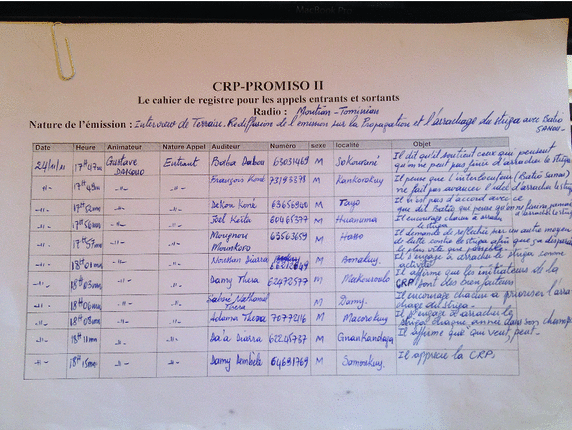 MacBook Pro
CRP-PROMISO II
Le cahier de registre pour les appels entrants et sortants
Radio : Moutian - Tominian
Nature de l'émission : Interview de Terrain. Rediffusion de l'émission sur la Propagation et l'arrachage du striga avec Batio
SANOU.
Date Heure Animateur Nature Appel Auditeur Numéro sexe localité Objet
24/11/11 17H47mn Gustave DAKOUO Entrant Dabou 63031469 M Sokourani Il dit qu'il soutient ceux qui pensent
qu'on ne peut pas finir d'arracher le striga
-//- 17H49mn -//- -//- François Koné 73195378 M Kankorokuy Il pense que l'interlocuteur (Batio Sanou)
ne fait pas avancer l'idée d'arracher le striga
-//- 17H52mn -//- -//- Koné 63656940 M Togo Il n'est pas d'accord avec ce
que dit Batio
-//- 17H56mn -//- -//- Joël Keita 60465377 M Huanuma Il encourage chacun à arracher
le striga
-//- 17H57mn -//- -//- Mounkoro 63563659 M Hasso Il demande de réfléchir par un autre moyen
de lutte contre le striga afin que ça disparaisse
le plus vite que possible.
-//- 18H01mn -//- -//- Diarra M Il s'engage à arracher le striga comme
activité
-//- 18H03mn -//- -//- Damy Thera 62472577 M Il affirme que les initiateurs de la
CRP sont des bienfaiteurs
-//- 18H06mn -//- -//- Nathanael Thera M Damy. Il encourage chacun à
striga.
-//- 18H08mn -//- -//- Adama Thera 70777216 M Il s'engage d'arracher le
striga chaque année dans son champ
-//- 18H11mn -//- -//- Diarra 62245737 M Il affirme que "qui veut, peut"
-//- 18H15mn -//- -//- Damy Dembélé 64691769 M Il apprécie la CRP.